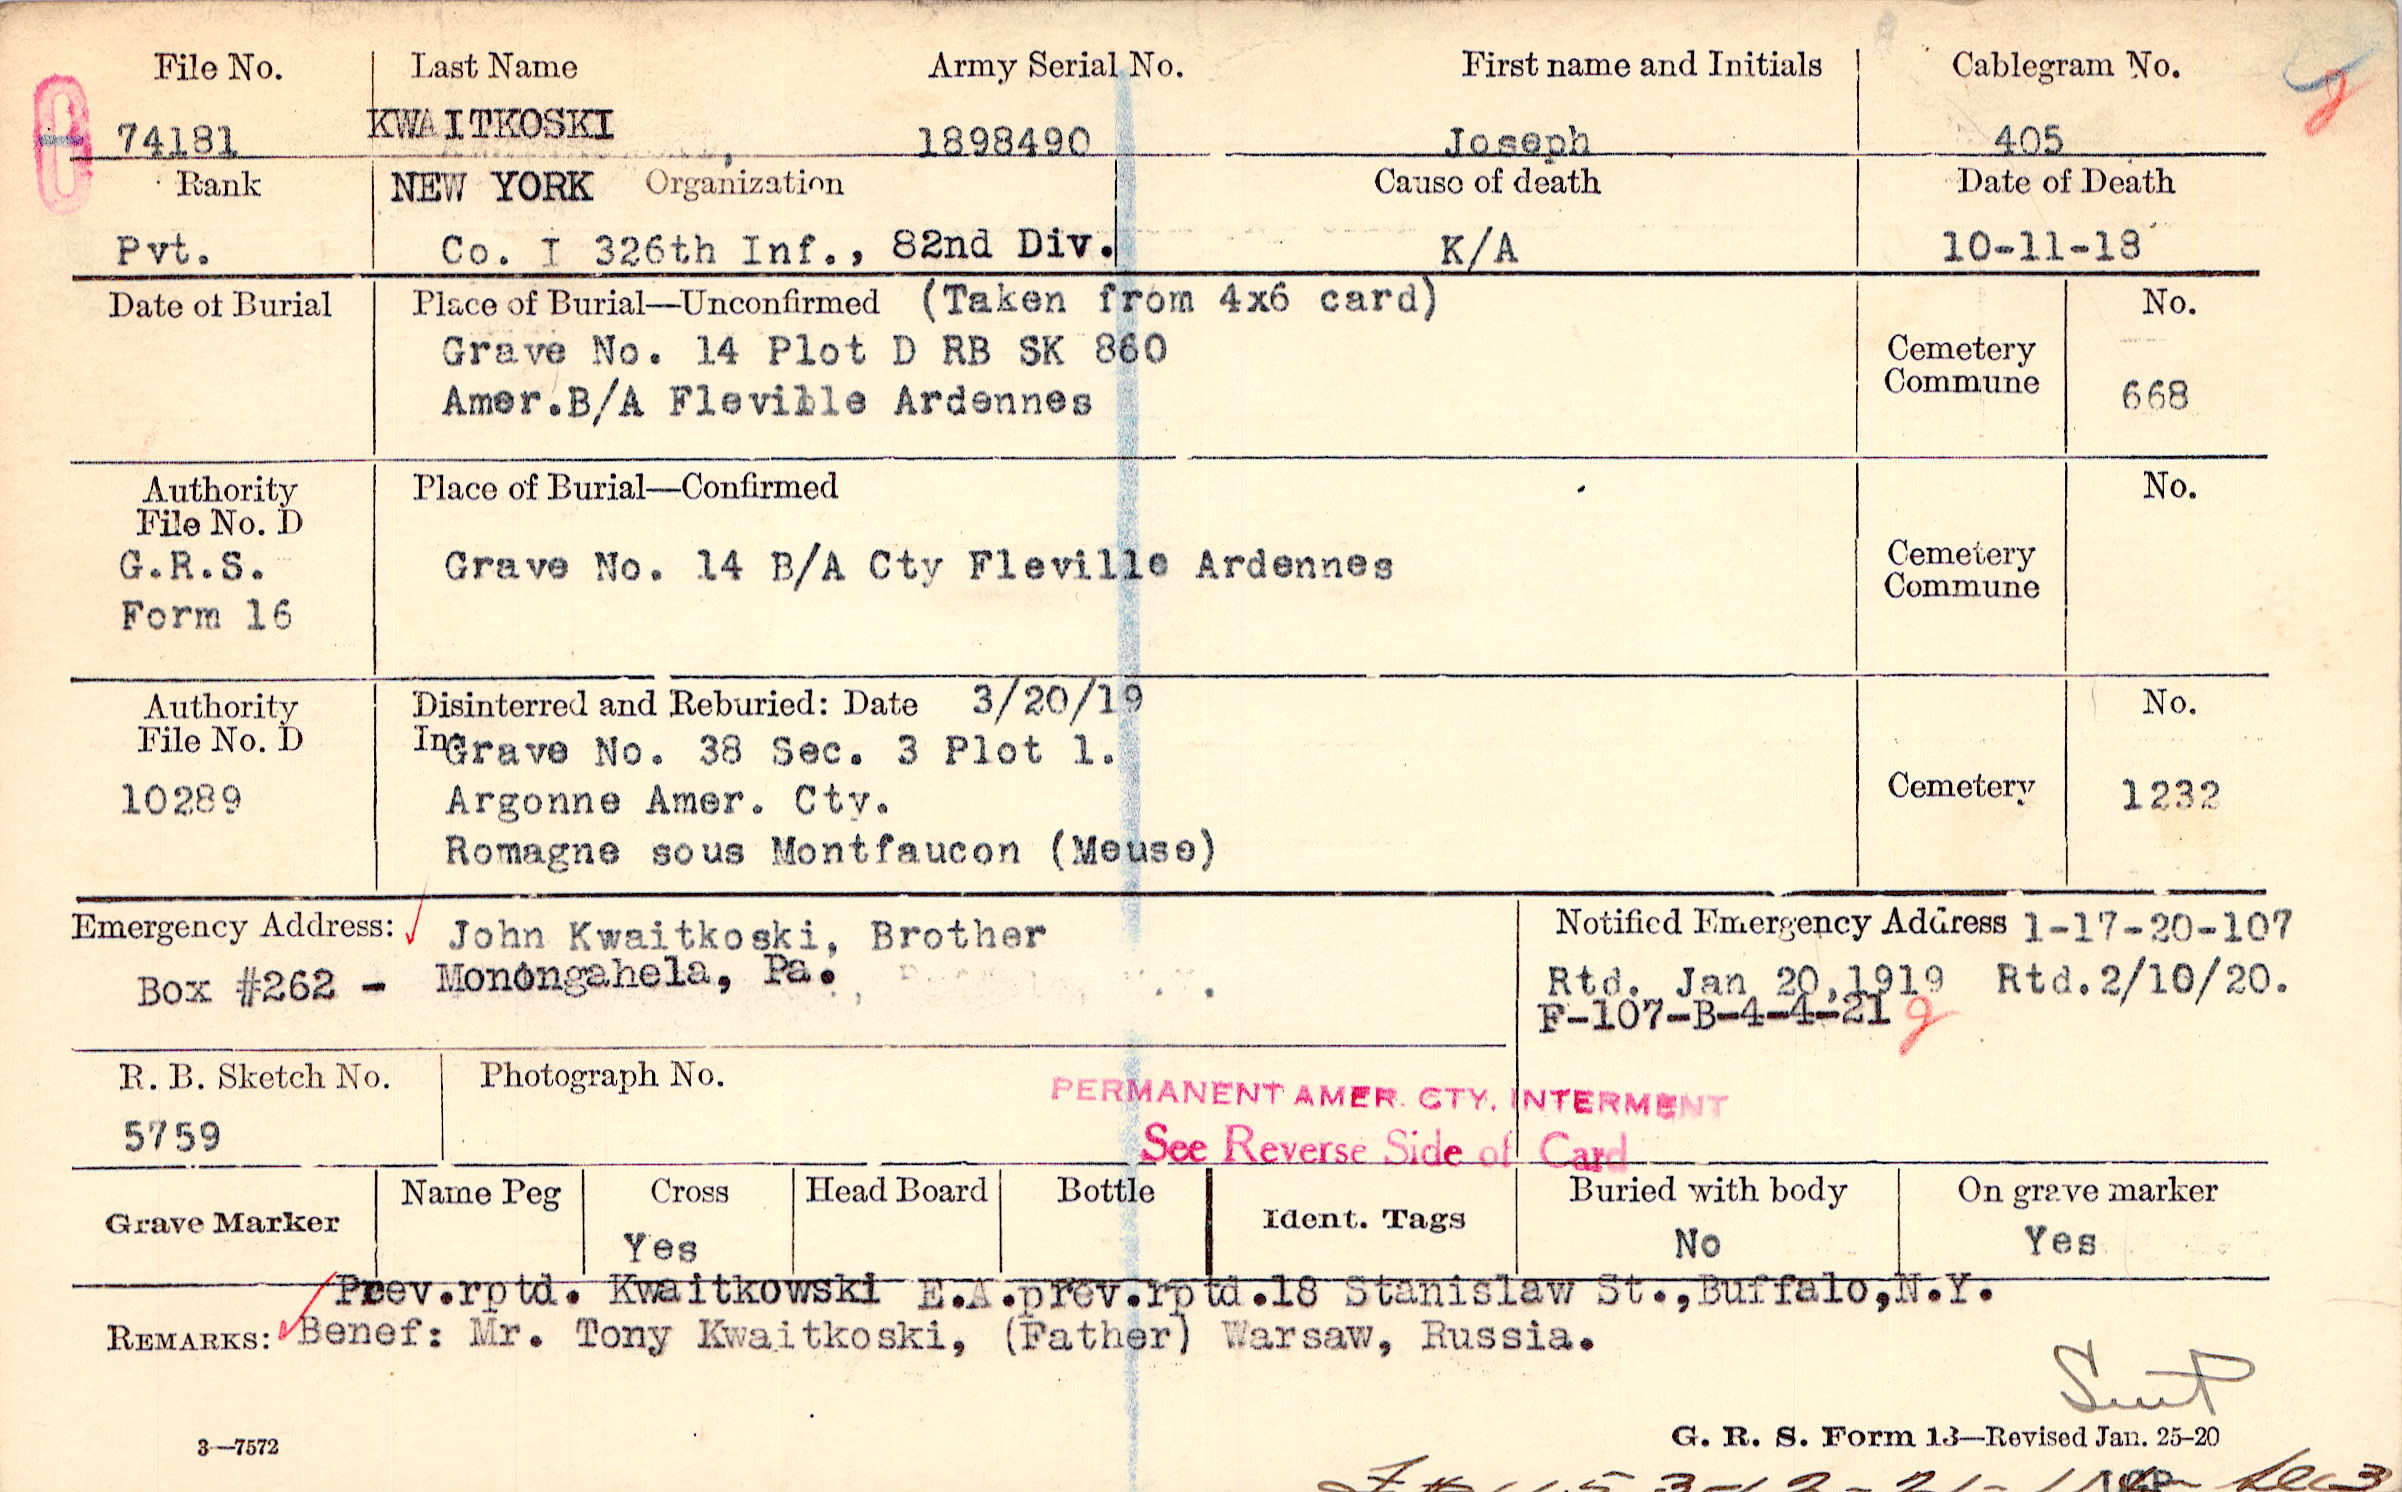 File No. Last Name Army Serial No. First name and Initials Cablegram No.
74181 KWAITKOSKI 1898490 Joseph 405
Rank NEW YORK Organization Cause of death Date of Death
Pvt. Co. I 326th Inf., 82nd Div. K/A 10-11-18
Date of Burial Place of Burial—Unconfirmed (Taken from 4x6 card) No.
Grave No. 14 Plot D RB SK 860
Amer.B/A Fleville Ardennes
Cemetery
Commune 668
Authority Place of Burial—Confirmed No.
File No. D
G.R.S. Grave No. 14 B/A Cty Fleville Ardennes
Form 16
Cemetery
Commune
Authority Disinterred and Reburied: Date 3/20/19 No.
File No. D In Grave No. 38 Sec. 3 Plot 1.
10289 Argonne Amer. Cty. Cemetery 1232
Romagne sous Montfaucon (Meuse)
Emergency Address: John Kwaitkoski, Brother Notified Emergency Address 1-17-20-107
Box #262 - Monongahela, Pa. Rtd. Jan 20,1919 Rtd.2/10/20.
F-107-B-4-4-21
R. B. Sketch No. Photograph No.
5759
PERMANENT AMER. CTY. INTERMENT
See Reverse Side of Card
Grave Marker Name Peg Cross Head Board Bottle Ident. Tags Buried with body On grave marker
Yes No Yes
Prev.rptd. Kwaitkowski E.A.prev.rptd.18 Stanislaw St.,Buffalo,N.Y.
REMARKS: Benef: Mr. Tony Kwaitkoski, (Father) Warsaw, Russia.
3—7572 G. R. S. Form 13—Revised Jan. 25-20